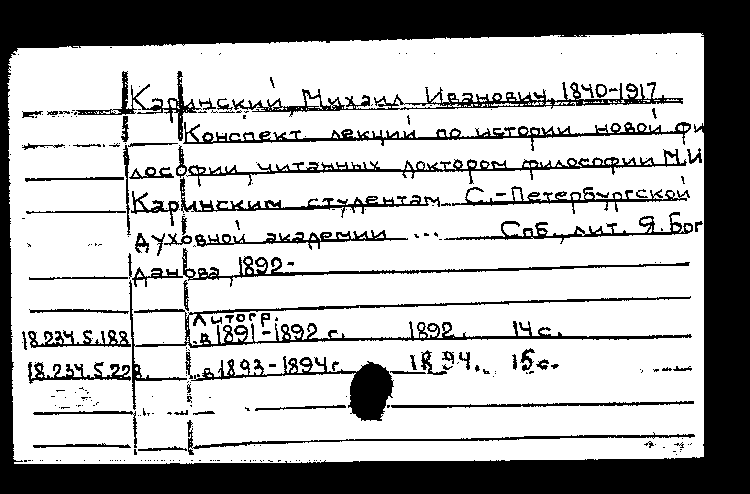 Каринский, Михаил Иванович, 1840-1917.
Конспект лекций по истории новой фи
лософии, читанных доктором философии М.И
Каринским студентам С.-Петербургской
духовной академии ... Спб., лит. Я. Бог
данова, 1892-
Литогр.
18.234.5.188 ..в 1891-1892 г. 1892. 14 с.
18.234.5.228. ..в 1893-1894 г. 1894. 15 с.